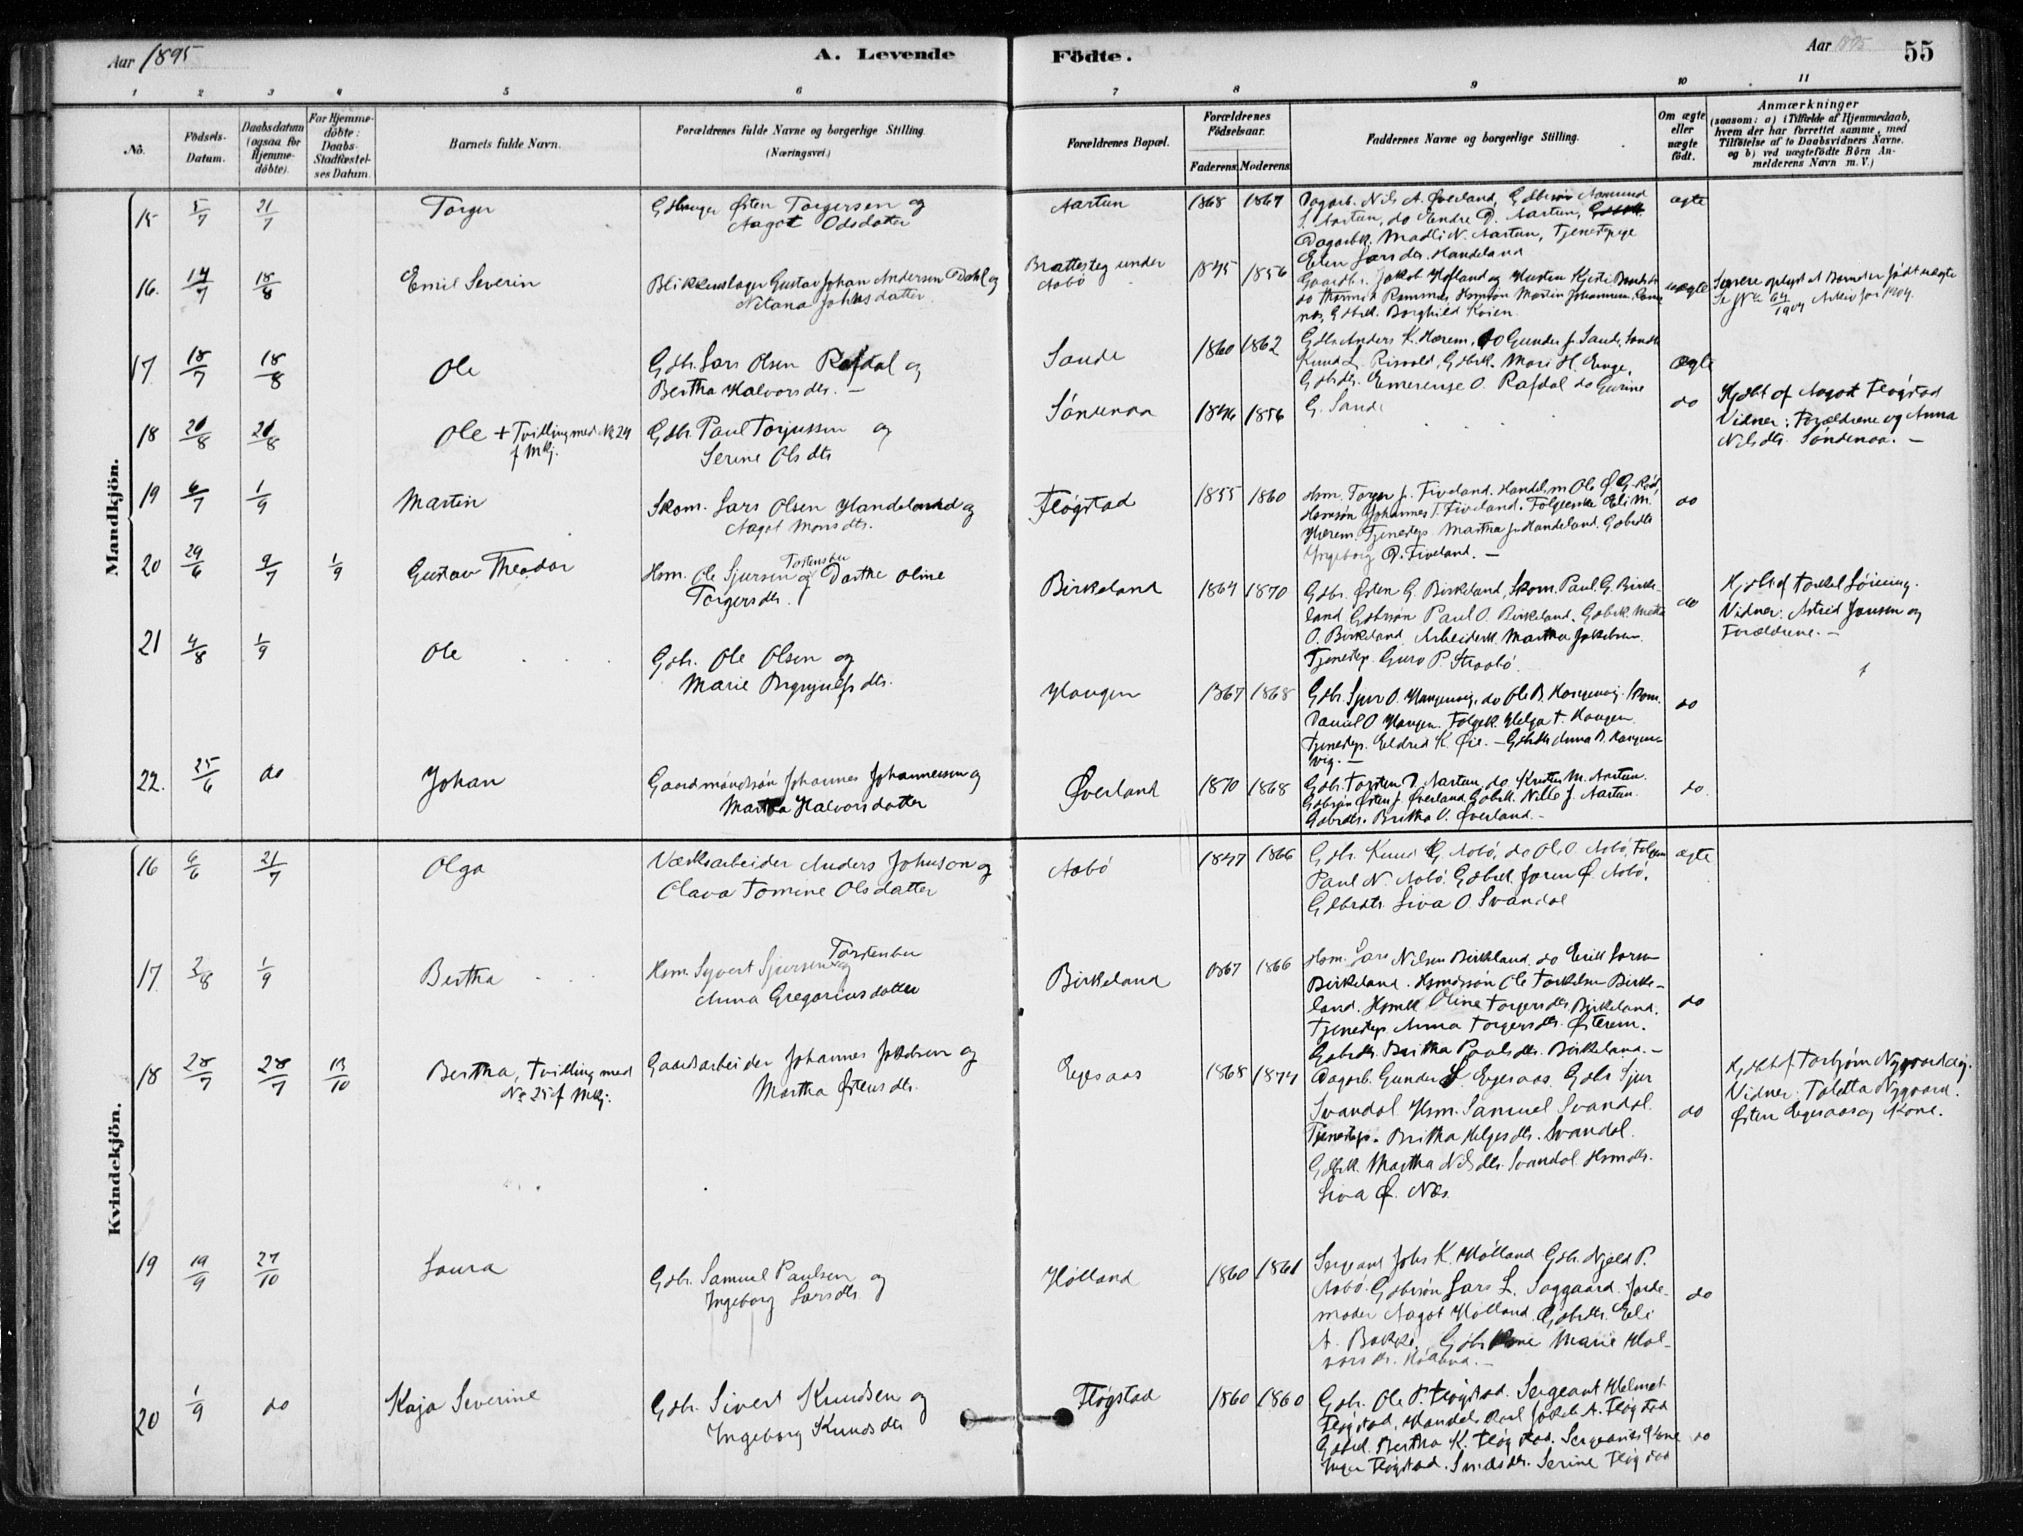 Aar 1895
A. Levende
Födte.
Aar 1895
55
1 2 3 4 5 6 7 8 9 10 11
No.
Födsels-
Datum.
Daabsdatum
(ogsaa for
Hjemme-
döbte).
For Hjemme-
döbte:
Daabs-
Stadfæstel-
ses Datum.
Barnets fulde Navn.
Forældrenes fulde Navne og borgerlige Stilling.
(Næringsvei.)
Forældrenes Bopæl.
Forældrenes
Födselsaar.
Faderens. Moderens.
Faddernes Navne og borgerlige Stilling.
Om ægte
eller
uægte
födt.
Anmærkninger
(saasom: a) i Tilfælde af Hjemmedaab,
hvem der har forrettet samme, med
Tilföielse af to Daabsvidners Navne,
og b) ved uægtefödte Börn An-
melderens Navn m. V.)
Mandkjön.
15 5/7 21/7 Torger
Østen Torgersen og
Aagot Odsdatter
Aartun 1868 1867
Dagarb. Nils A. Øverland, Gdbrsøn Aamund
S. Aartun, do Endre D. Aartun,
Dagarbk. Madli N. Aartun, Tjenestpige
Elen Larsdtr. Handeland
ægte
16. 14/7 18/8 Emil Severin
Blikkenslager Gustav Johan Andersen Dahl og
Netana Johnsdatter
Bratteteg under
Aabö
1845 1856
Gaardbr. Jakob Hofland og Hustru
no, Gdbrk. Borghild Koien
uægte
Senere oplyst at Barnet er født uægte
17. 18/7 18/8 Ole
Gdbr. Lars Olsen Rafdal og
Bertha Halvorsdtr. —
Sande 1860 1862
Gdbr. Anders K. Hærem, do Gunder J. Sande,
Knud L. Risvold, Gdbrk. Mari H. Enge,
Gdbrdtr. Emerense O. Rafdal do Gurine
G. Sande
ægte
18 20/8 20/8 Ole + Tvilling med No 24
f Mkj.
Gdbr. Paul Torjussen og
Serine Olsdtr
Söndenaa 1846 1856
do
Hjdbt af Aagot Fløgstad
Vidner: Forældrene og Anna
Nilsdtr. Söndenaa. —
19 6/7 1/9 Martin
Skom. Lars Olsen Handeland og
Aagot Monsdtr.
Fløgstad 1855 1860
Hsm. Torger J. Fiveland. Handelsm Ole Ø.
Hsmsøn Johannes T. Fiveland. Folgeenke Eli M.
Hærem. Tjenestep. Martha J. Handeland. Gdbrdtr
Ingeborg D. Fiveland. —
do
20 29/6 9/7 1/9 Gustav Theodor
Hsm. Ole Sjursen Torstenbu og Dorthe Oline
Torgersdtr.
Birkeland 1864 1870
Gdbr. Østen G. Birkeland, Skom. Paul G. Birke-
land, Gdbrsøn Paul O. Birkeland, Gdbrk. Metha
O. Birkeland, Arbeiderk. Martha Jakobsen
Tjenestep. Guro P. Straabö
do
Hjdbt af Torkel
Vidner: Astrid Jansen og
Forældrene. —
21 4/8 1/9 Ole
Gdbr. Ole Olsen og
Marie Brynjulfsdtr.
Haugen 1867 1868
Gdbr. Sjur O. Haugenvig, do Ole B. Haugenvig. Skom.
Daniel O. Haugen. Folgek. Helga T. Haugen
Tjenestep. Eldrid K. Øie. — Gdbrdtr Anna B. Haugen-
vig. —
do
22. 25/6 do Johan
Gaardmandssøn Johannes Johannessen og
Martha Halvorsdatter
Øverland 1870 1868
Gdbr. Torsten D. Aartun, do Kristen M. Aartun.
Gdbrsøn Østen J. Øverland, Gdbrk. Nille J. Aartun.
Gdbrdtr. Britha O. Øverland. —
do.
Kvindekjön.
16 6/6 21/7 Olga
Værksarbeider Anders Johnson og
Olava Tomine Olsdatter
Aabö 1847 1866
Gdbr. Knud G. Aabö, do Ole O. Aabö, Folgem
Paul N. Aabö. Gdbrk. Joren Ø. Aabö,
Gdbrdtr. Siva O. Svandal
ægte
17. 2/8 1/9 Bertha
Hsm. Syvert Sjursen Torstenbu og
Anna Gregoriusdatter
Birkeland 1867 1866
Hsm. Lars Nilsen Birkland, do Erik Larsen
Birkeland. Hsmdssøn Ole Torkelsen Birke-
land. Hsmk. Oline Torgersdtr Birkeland.
Tjenestep. Anna Torgersdtr. Østerem.
Gdbrdtr. Britha Paulsdtr. Birkeland. —
do
18 28/7 28/7 13/10 Bertha, Tvilling med
No 25 f Mkj.
Gaardarbeider Johannes Jakobsen og
Martha Østensdtr.
Egesaas 1868 1874
Dagarb. Gunder L. Egesaas. Gdbr Sjur
Svandal. Hsm. Samuel Svandal.
Tjenestep. Britha Helgesdtr. Svandal.
Gdbrk. Martha Nilsdtr. Svandal. Hsmdtr.
Siva Ø. Næs.
do
Hjdbt af Torbjørn Nygaard
Vidner: Toletta Nygaard.
Østen Egesaas og Kone.
19 19/9 27/10 Laura
Gdbr. Samuel Paulsen og
Ingeborg Larsdtr.
Hölland 1860 1861
Sergeant Johs K. Hölland Gdbr. Njeld P.
Aabö. Gdbrsøn Lars L. Saggaard. Jorde-
moder Aagot Hölland. Gdbrdtr. Eli
A. Bakke. Gdbr. Kone Marie Hal-
vorsdtr. Hölland. —
do
20 1/9 do Kaja Severine
Gdbr. Sivert Knudsen og
Ingeborg Knudsdtr
Fløgstad 1860 1860
Gdbr. Ole P. Fløgstad. Sergeant Helmet
Fløgstad. Handelskarl Jakob A. Fløgstad
Gdbrk. Bertha K. Fløgstad. Sergeantens Kone
Inger Fløgstad. Smedsdtr. Serine Fløgstad
do